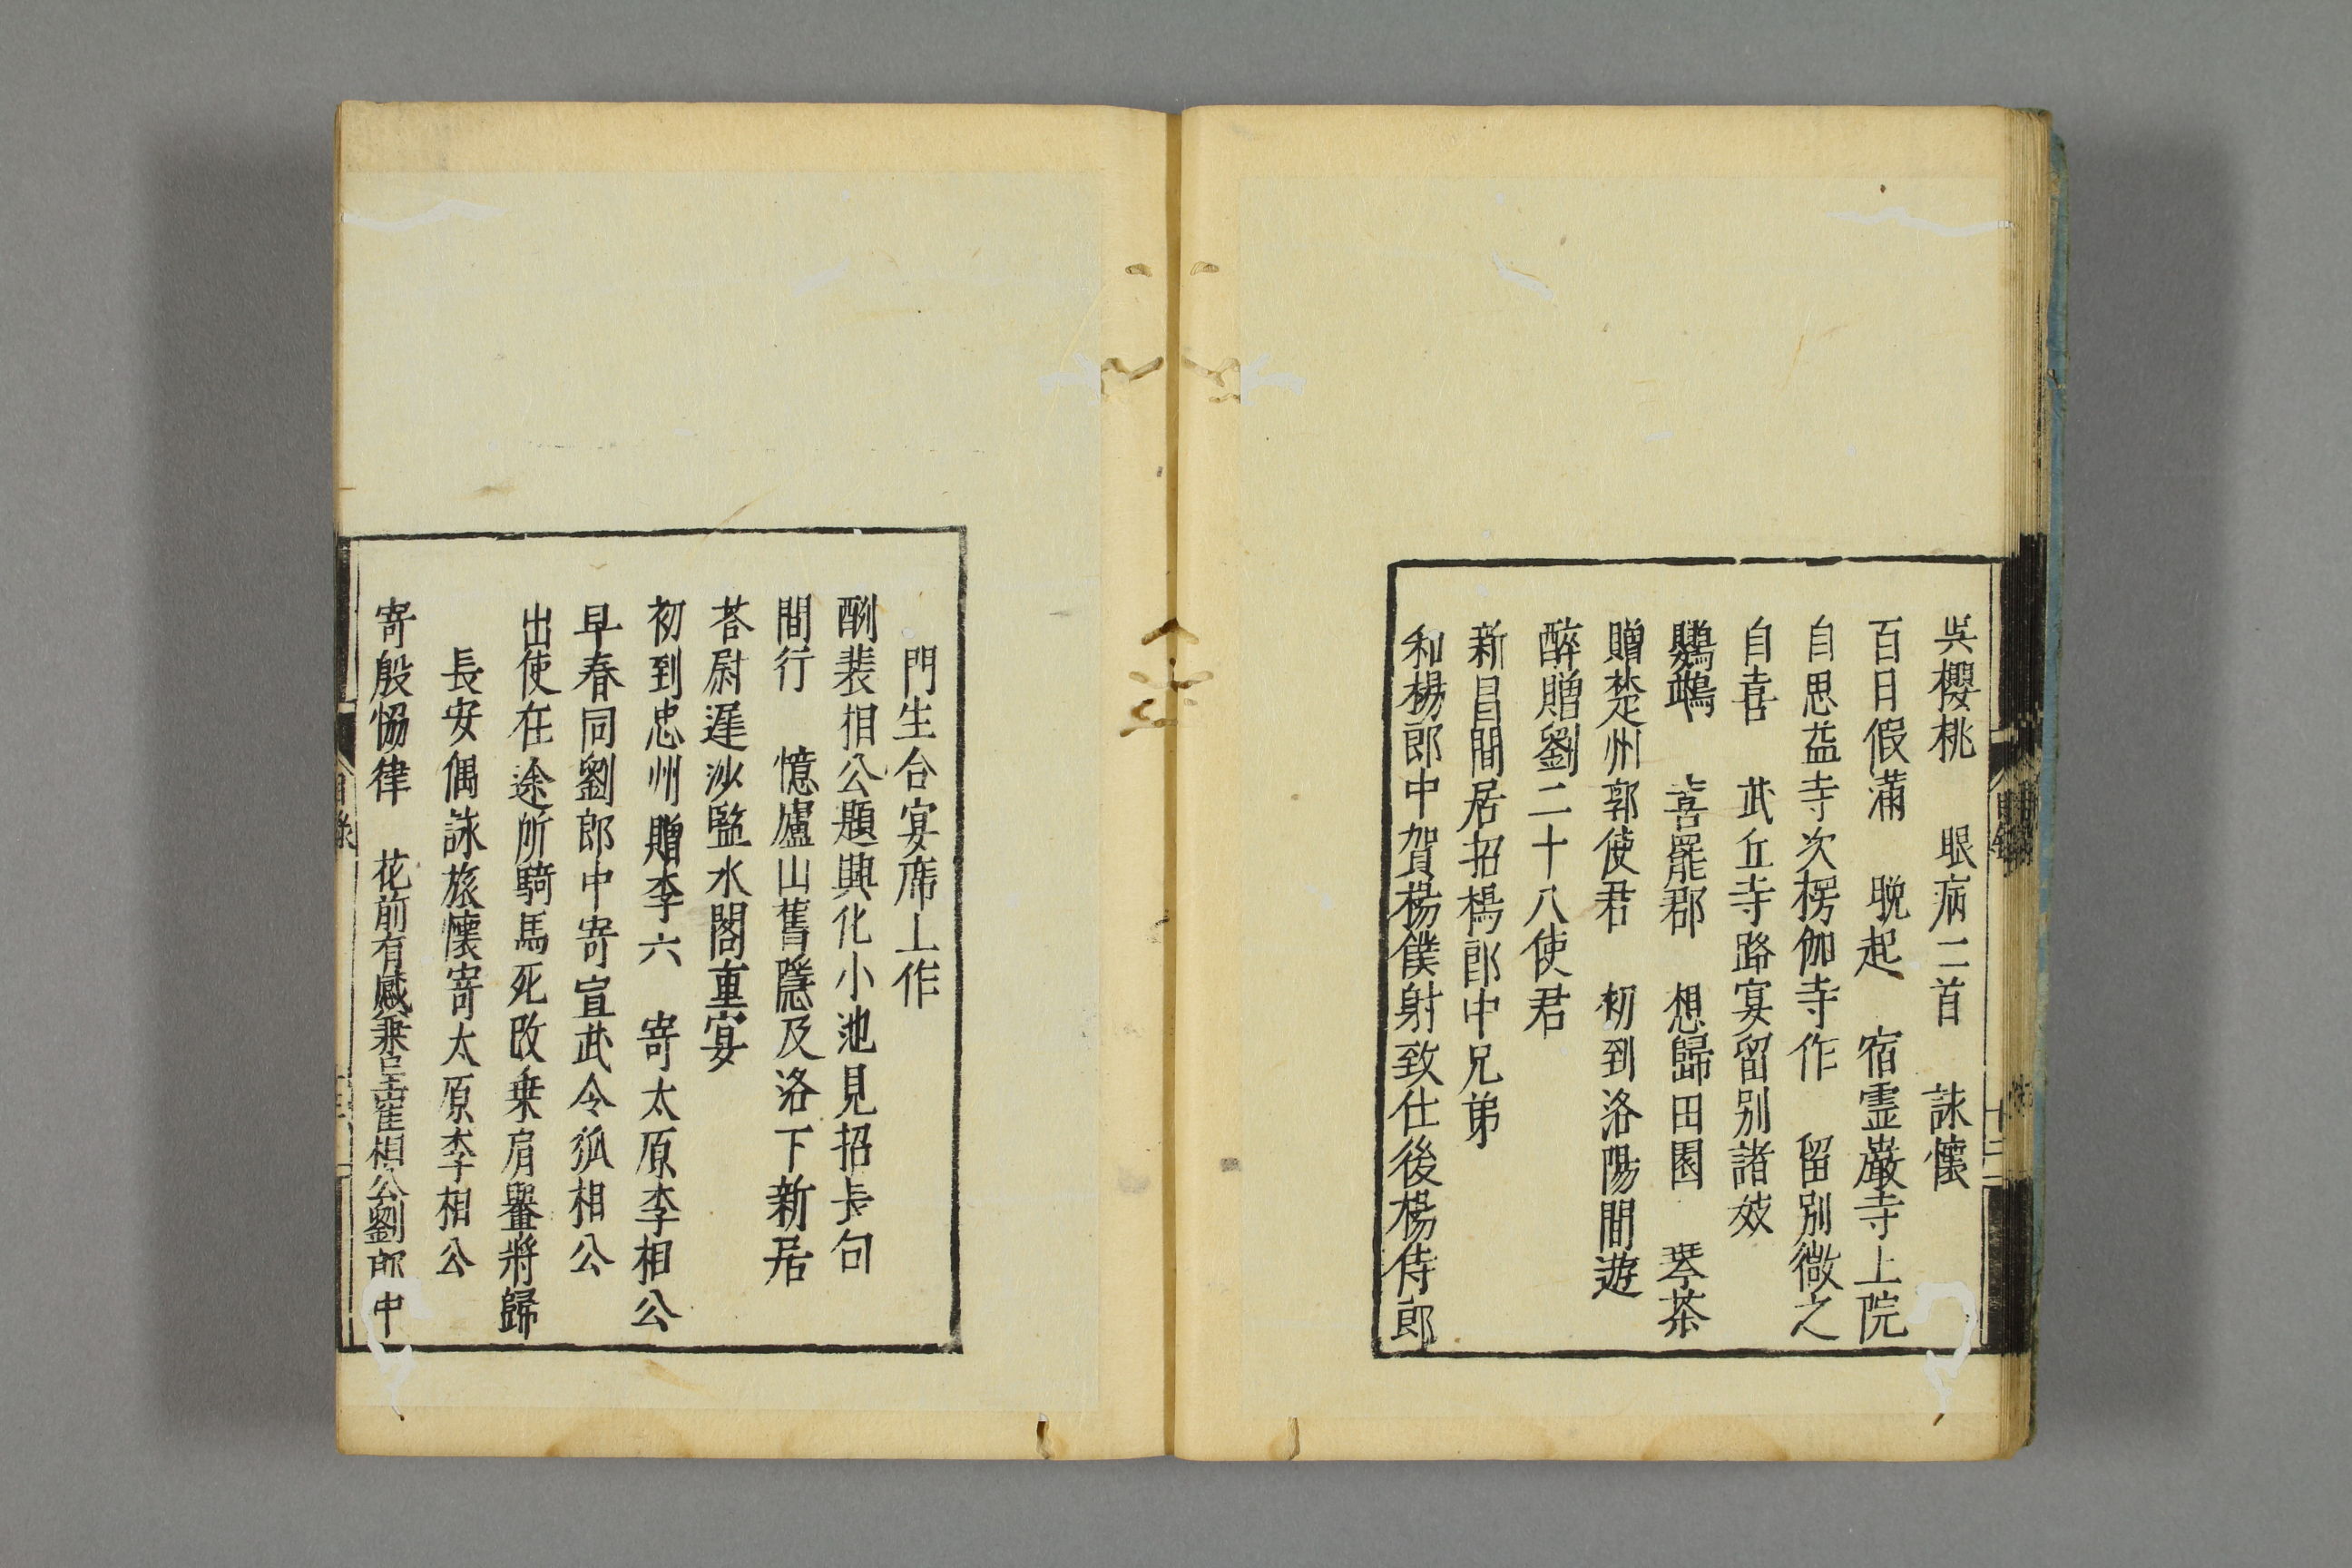 吳櫻桃　眼病二首　詠懷
百日假滿　晩起　宿霊巖寺上院
自思益寺次楞伽寺作　留別微之
自喜　武丘寺路宴留别諸妓
鸚鵡　喜罷郡　想歸田園　琴茶
贈楚州郭使君　初到洛陽間遊
醉贈劉二十八使君
新昌間居招楊郎中兄弟
和楊郎中賀楊僕射致仕後楊侍郎
門生合宴席上作
酬裴相公題興化小池見招長句
間行　憶廬山舊隱及洛下新居
荅尉遲沙監水閣重宴
初到忠州贈李六　寄太原李相公
早春同劉郎中寄宣武令狐相公
出使在途所騎馬死改乗肩轝將歸
長安偶詠旅懷寄太原李相公
寄殷恊律　花前有感兼呈崔相公劉郎中
目录